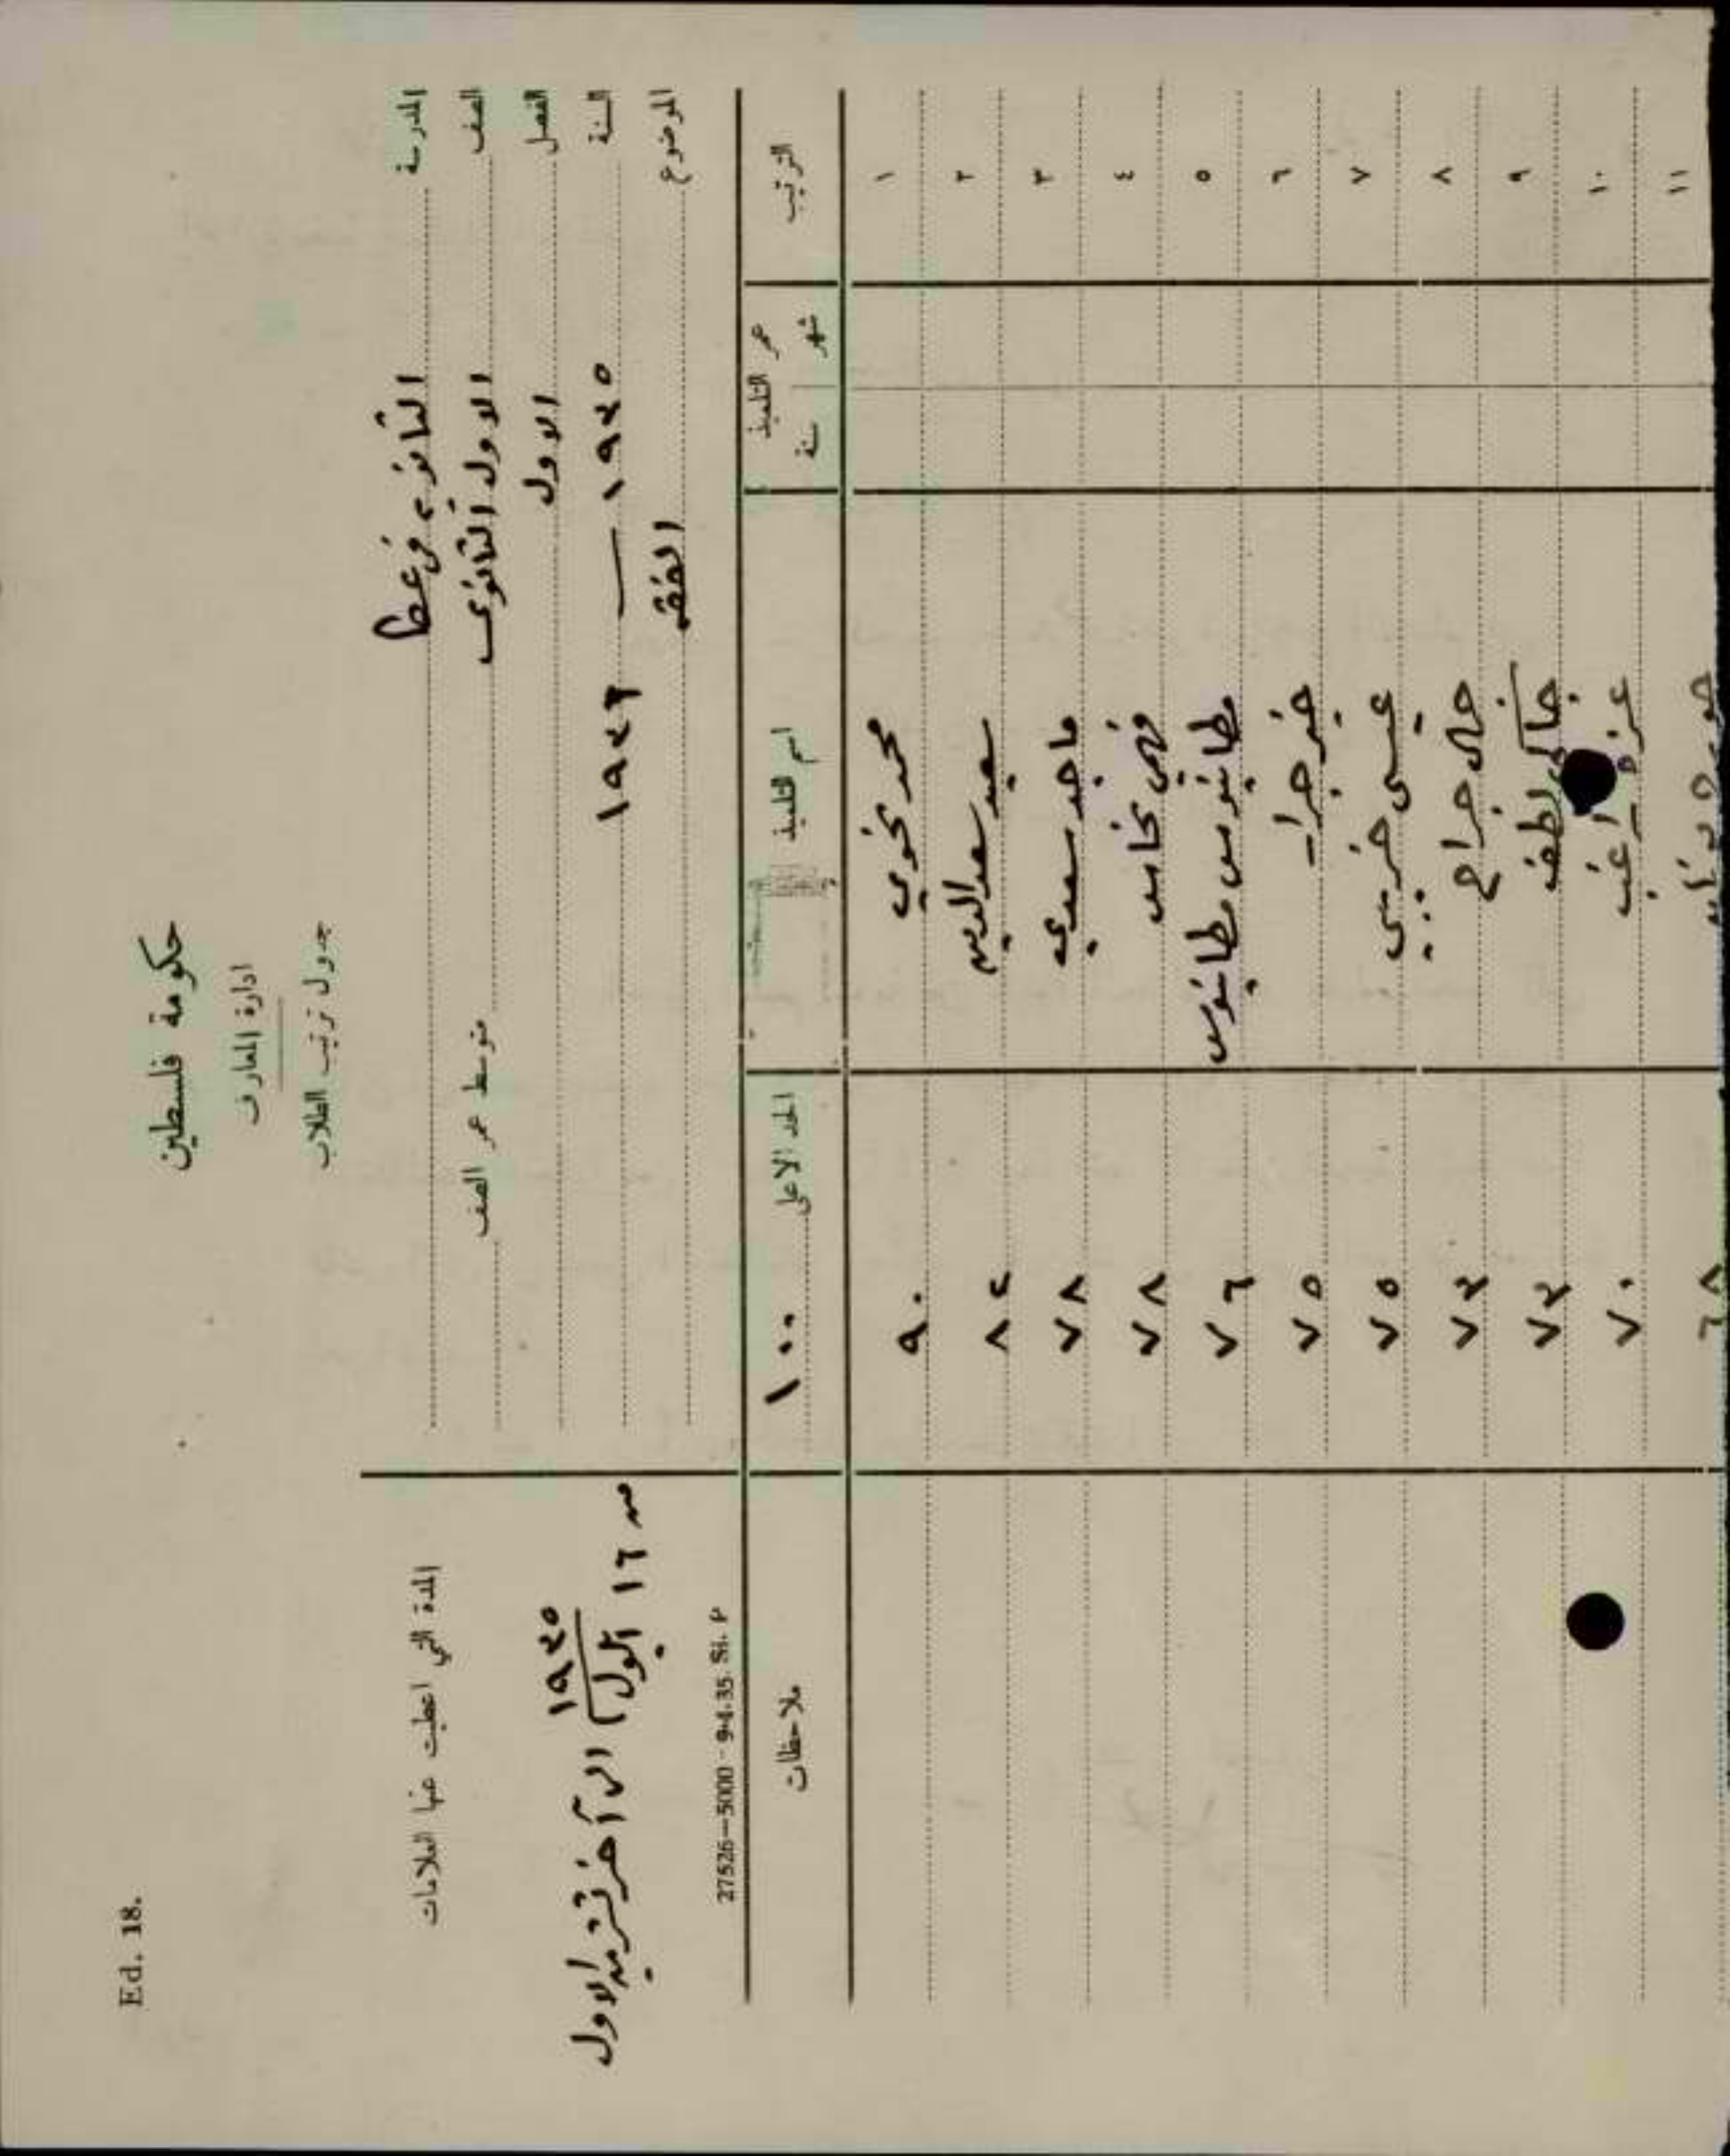 Ed. 18.
حكومة فلسطين
ادارة المعارف
جدول ترتيب الطلاب
المدرسة الثانوية في عكا
الصف الاول الثانوي متوسط عمر الصف
الفصل الاول
السنة ١٩٣٥ — ١٩٣٦
الموضوع
المدة التي اعطيت عنها العلامات
من ١٦ ايلول ١٩٣٥ الى آخر تشرين الاول
27526—5000—9-4-35. Si. P
الترتيب عمر التلميذ اسم التلميذ الحد الاعلى ١٠٠ ملاحظات
شهر سنة
١ محمد نحوي ٩٠
٢ سعيد سعد الدين ٨٢
٣ ماجد سعدي ٧٨
٤ نحاس ٧٨
٥ مطانيوس مطانيوس ٧٦
٦ خضر جرار ٧٥
٧ عيسى ٧٥
٨ جراح ٧٣
٩ لطفي ٧٣
١٠ عزة راغب ٧٠
١١ ٦٨